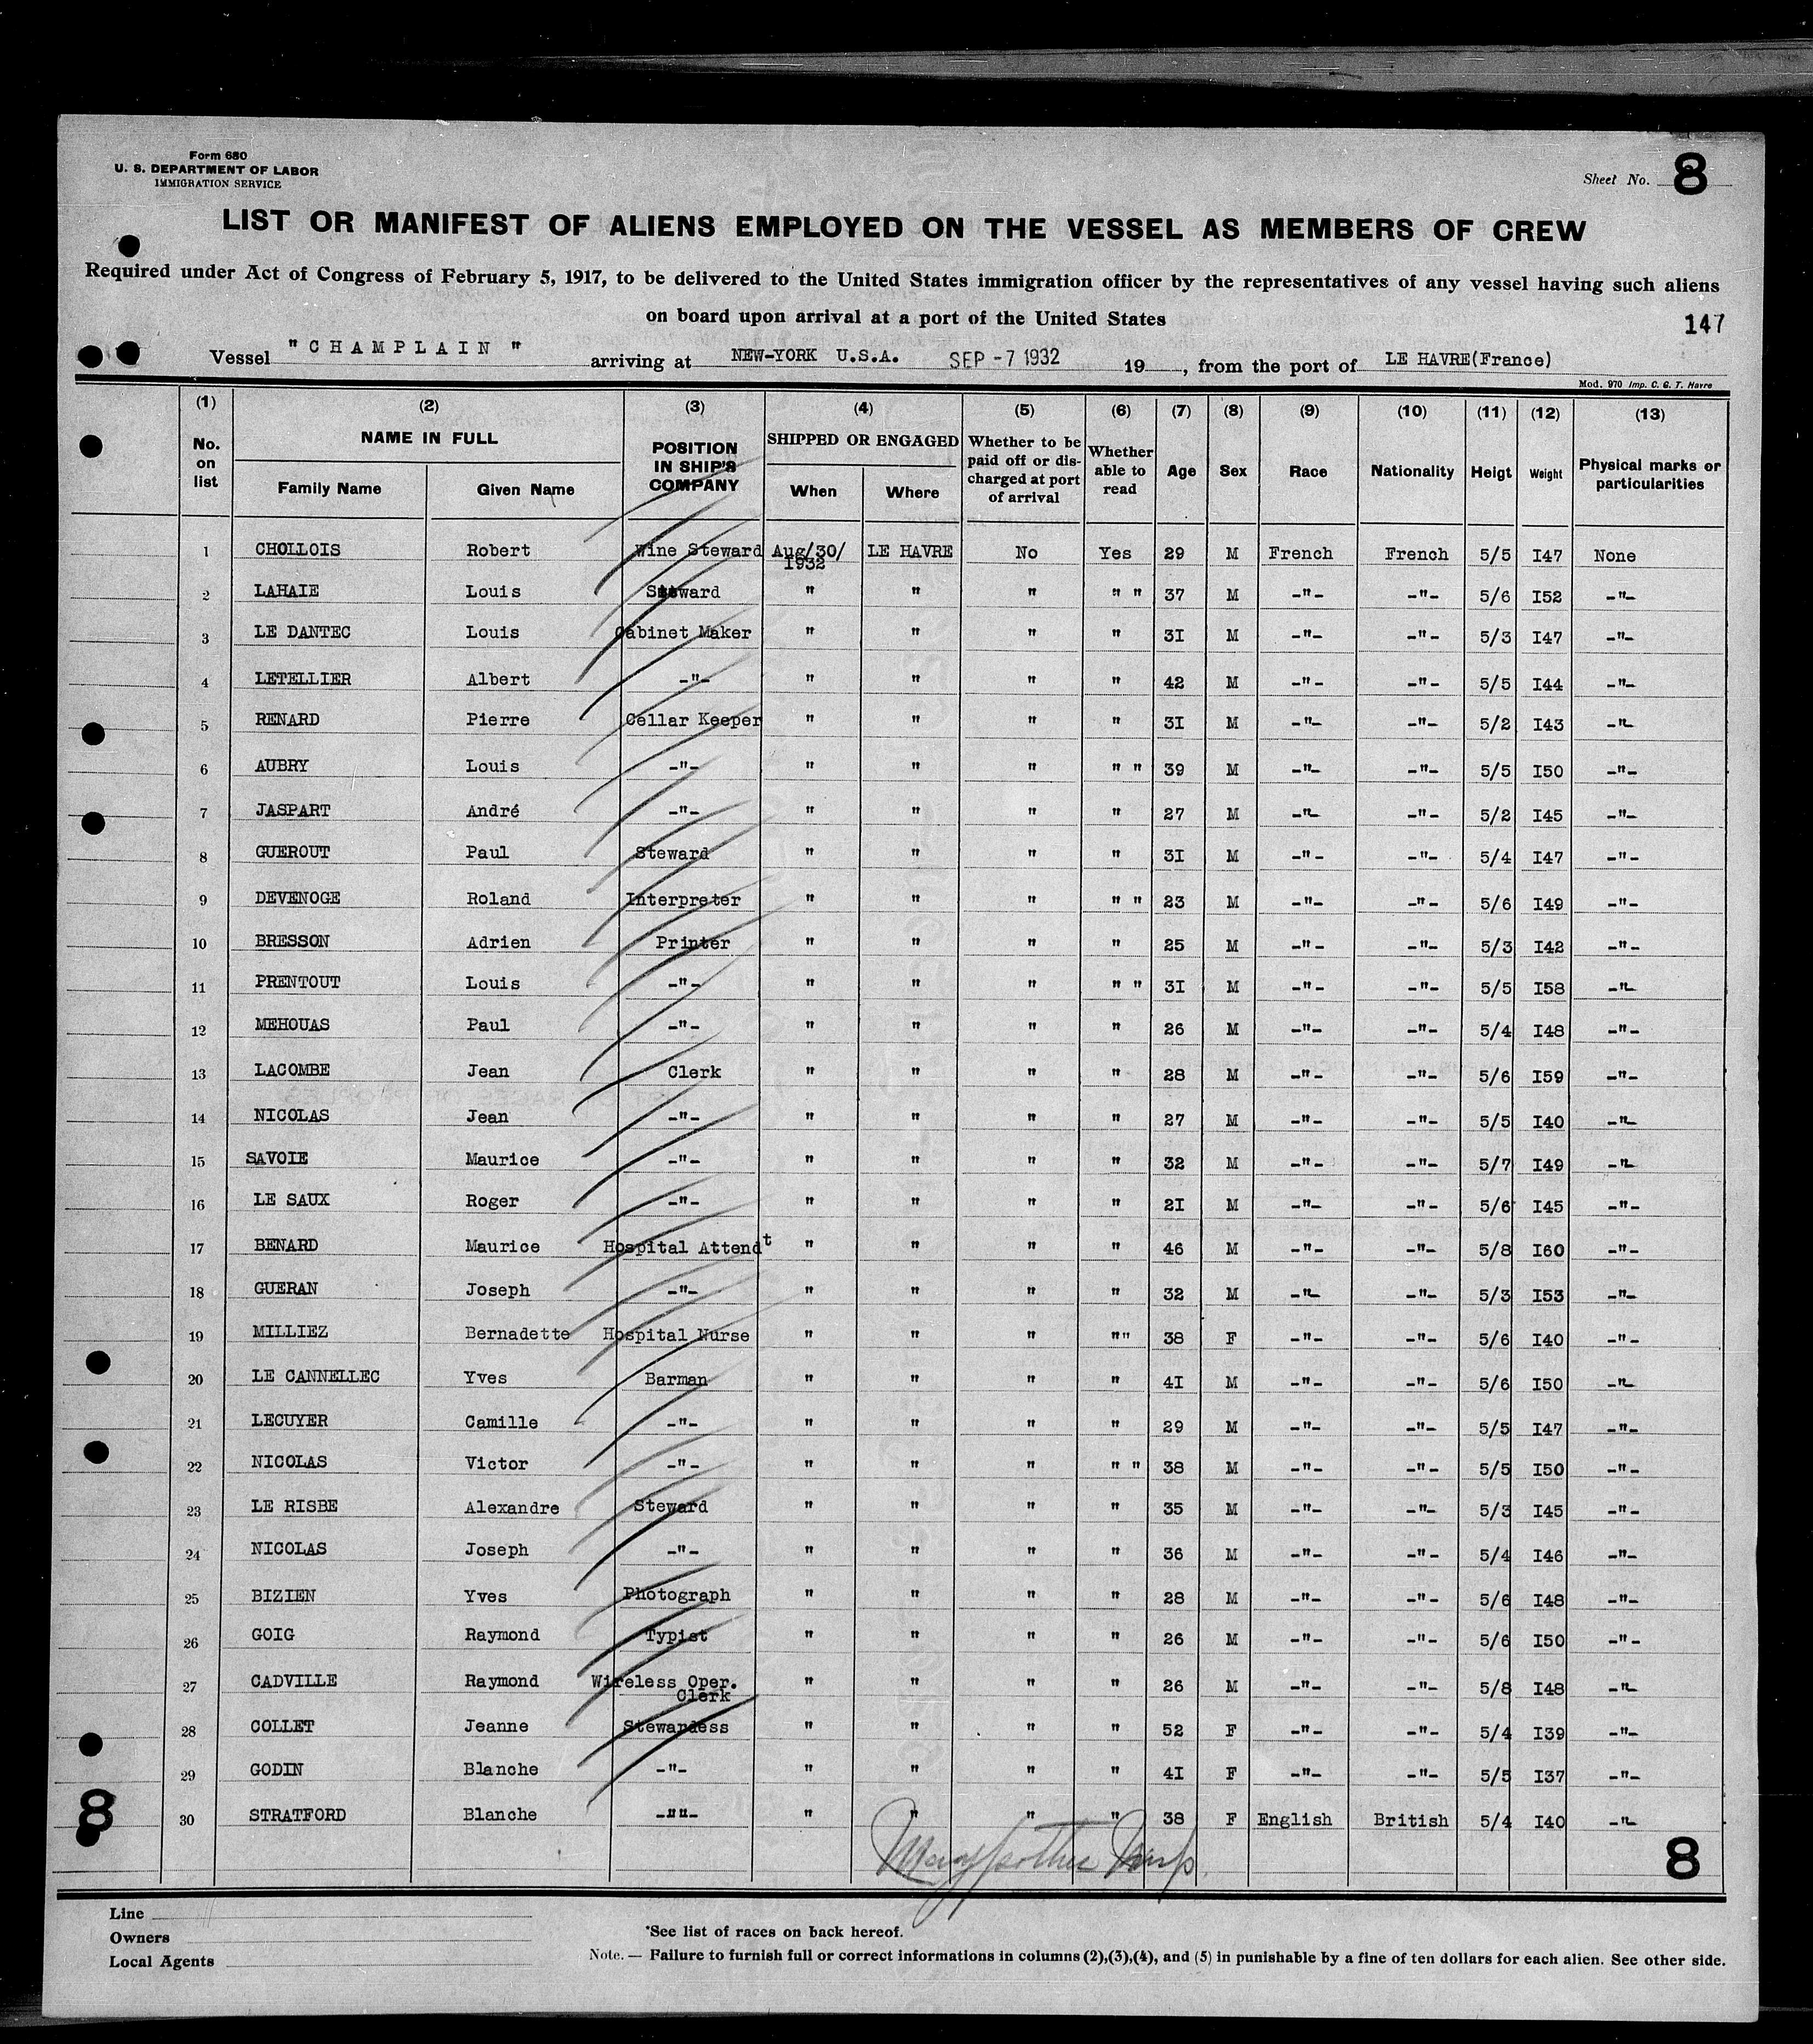 Form 680
U. S. DEPARTMENT OF LABOR
IMMIGRATION SERVICE
Sheet No. 8
LIST OR MANIFEST OF ALIENS EMPLOYED ON THE VESSEL AS MEMBERS OF CREW
Required under Act of Congress of February 5, 1917, to be delivered to the United States immigration officer by the representatives of any vessel having such aliens
on board upon arrival at a port of the United States
147
Vessel "CHAMPLAIN" arriving at NEW-YORK U.S.A. SEP -7 1932 19 , from the port of LE HAVRE(France)
Mod. 970 Imp. C. G. T. Havre
(1) (2) (3) (4) (5) (6) (7) (8) (9) (10) (11) (12) (13)
No. on list NAME IN FULL Family Name Given Name POSITION IN SHIP'S COMPANY SHIPPED OR ENGAGED When Where Whether to be paid off or discharged at port of arrival Whether able to read Age Sex Race Nationality Heigt Weight Physical marks or particularities
1 CHOLLOIS Robert Wine Steward Aug/30/1932 LE HAVRE No Yes 29 M French French 5/5 I47 None
2 LAHAIE Louis Steward " " " " " 37 M -"- -"- 5/6 I52 -"-
3 LE DANTEC Louis Cabinet Maker " " " " 3I M -"- -"- 5/3 I47 -"-
4 LETELLIER Albert -"- " " " " 42 M -"- -"- 5/5 I44 -"-
5 RENARD Pierre Cellar Keeper " " " " 3I M -"- -"- 5/2 I43 -"-
6 AUBRY Louis -"- " " " " " 39 M -"- -"- 5/5 I50 -"-
7 JASPART André -"- " " " " 27 M -"- -"- 5/2 I45 -"-
8 GUEROUT Paul Steward " " " " 3I M -"- -"- 5/4 I47 -"-
9 DEVENOGE Roland Interpreter " " " " " 23 M -"- -"- 5/6 I49 -"-
10 BRESSON Adrien Printer " " " " 25 M -"- -"- 5/3 I42 -"-
11 PRENTOUT Louis -"- " " " " " 3I M -"- -"- 5/5 I58 -"-
12 MEHOUAS Paul -"- " " " " 26 M -"- -"- 5/4 I48 -"-
13 LACOMBE Jean Clerk " " " " 28 M -"- -"- 5/6 I59 -"-
14 NICOLAS Jean -"- " " " " 27 M -"- -"- 5/5 I40 -"-
15 SAVOIE Maurice -"- " " " " 32 M -"- -"- 5/7 I49 -"-
16 LE SAUX Roger -"- " " " " 2I M -"- -"- 5/6 I45 -"-
17 BENARD Maurice Hospital Attendt " " " " 46 M -"- -"- 5/8 I60 -"-
18 GUERAN Joseph -"- " " " " 32 M -"- -"- 5/3 I53 -"-
19 MILLIEZ Bernadette Hospital Nurse " " " "" 38 F -"- -"- 5/6 I40 -"-
20 LE CANNELLEC Yves Barman " " " " 4I M -"- -"- 5/6 I50 -"-
21 LECUYER Camille -"- " " " " 29 M -"- -"- 5/5 I47 -"-
22 NICOLAS Victor -"- " " " " " 38 M -"- -"- 5/5 I50 -"-
23 LE RISBE Alexandre Steward " " " " 35 M -"- -"- 5/3 I45 -"-
24 NICOLAS Joseph -"- " " " " 36 M -"- -"- 5/4 I46 -"-
25 BIZIEN Yves Photograph " " " " 28 M -"- -"- 5/6 I48 -"-
26 GOIG Raymond Typist " " " " 26 M -"- -"- 5/6 I50 -"-
27 CADVILLE Raymond Wireless Oper. Clerk " " " " 26 M -"- -"- 5/8 I48 -"-
28 COLLET Jeanne Stewardess " " " " 52 F -"- -"- 5/4 I39 -"-
29 GODIN Blanche -"- " " " " 4I F -"- -"- 5/5 I37 -"-
30 STRATFORD Blanche -""- " " " " 38 F English British 5/4 I40 -"-
8
8
Line
Owners
Local Agents
*See list of races on back hereof.
Note. — Failure to furnish full or correct informations in columns (2),(3),(4), and (5) in punishable by a fine of ten dollars for each alien. See other side.